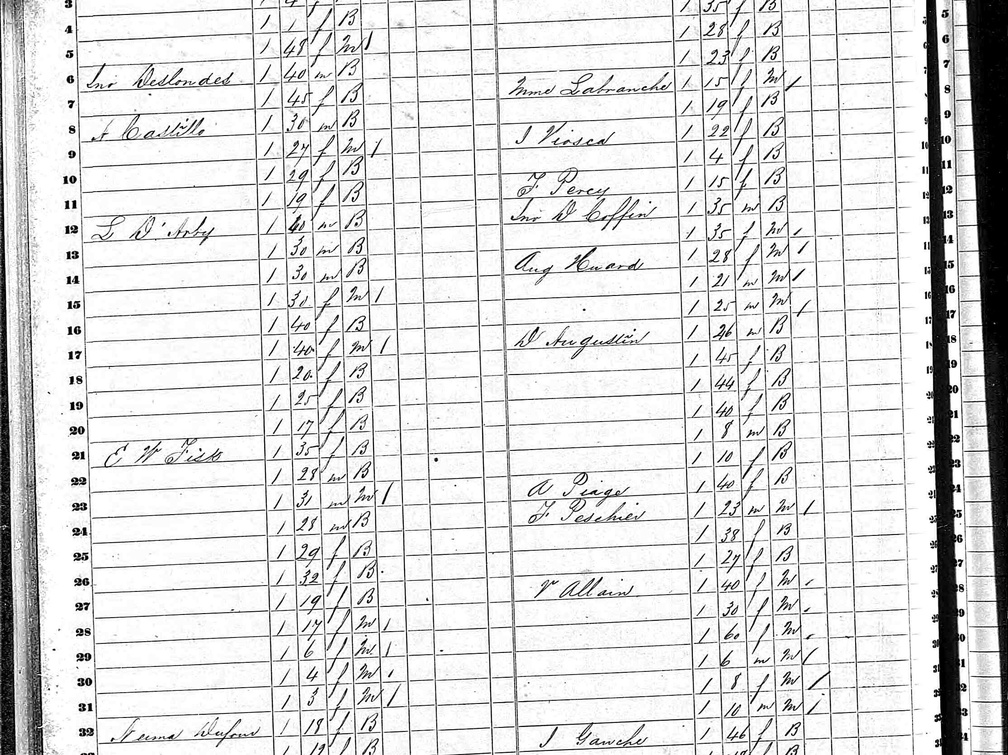 3
4 1 1 f B
5 1 48 f M 1
6 Jno Deslondes 1 40 m B
7 1 45 f B
8 A Castillo 1 30 m B
9 1 27 f M 1
10 1 29 f B
11 1 19 f B
12 L D'Arby 1 40 m B
13 1 30 m B
14 1 30 m B
15 1 30 f M 1
16 1 40 f B
17 1 40 f M 1
18 1 20 f B
19 1 25 f B
20 1 17 f B
21 E W Fisk 1 35 f B
22 1 28 m B
23 1 31 m M 1
24 1 28 m B
25 1 29 f B
26 1 32 f B
27 1 19 f B
28 1 17 f M 1
29 1 6 f M 1
30 1 4 f M 1
31 1 3 f M 1
32 Dufour 1 18 f B
1 12 f B
1 35 f B 5
1 28 f B 6
1 23 f B 7
Mme Labranche 1 15 f M 1 8
1 19 f B 9
J Viosca 1 22 f B 10
1 4 f B 11
F Percy 1 15 f B 12
Jno D Coffin 1 35 m B 13
1 35 f M 1 14
Aug Huard 1 28 f M 1 15
1 21 m M 1 16
1 25 m M 1 17
D Augustin 1 26 m B 18
1 45 f B 19
1 44 f B 20
1 40 f B 21
1 8 m B 22
1 10 f B 23
A Piage 1 40 f B 24
F Peschier 1 23 m M 1 25
1 38 f B 26
1 27 f B 27
V Allain 1 40 f M 1 28
1 30 f M 1 29
1 60 f M 1 30
1 6 m M 1 31
1 8 f M 1 32
1 10 m M 1 33
J Gauche 1 46 f B 34